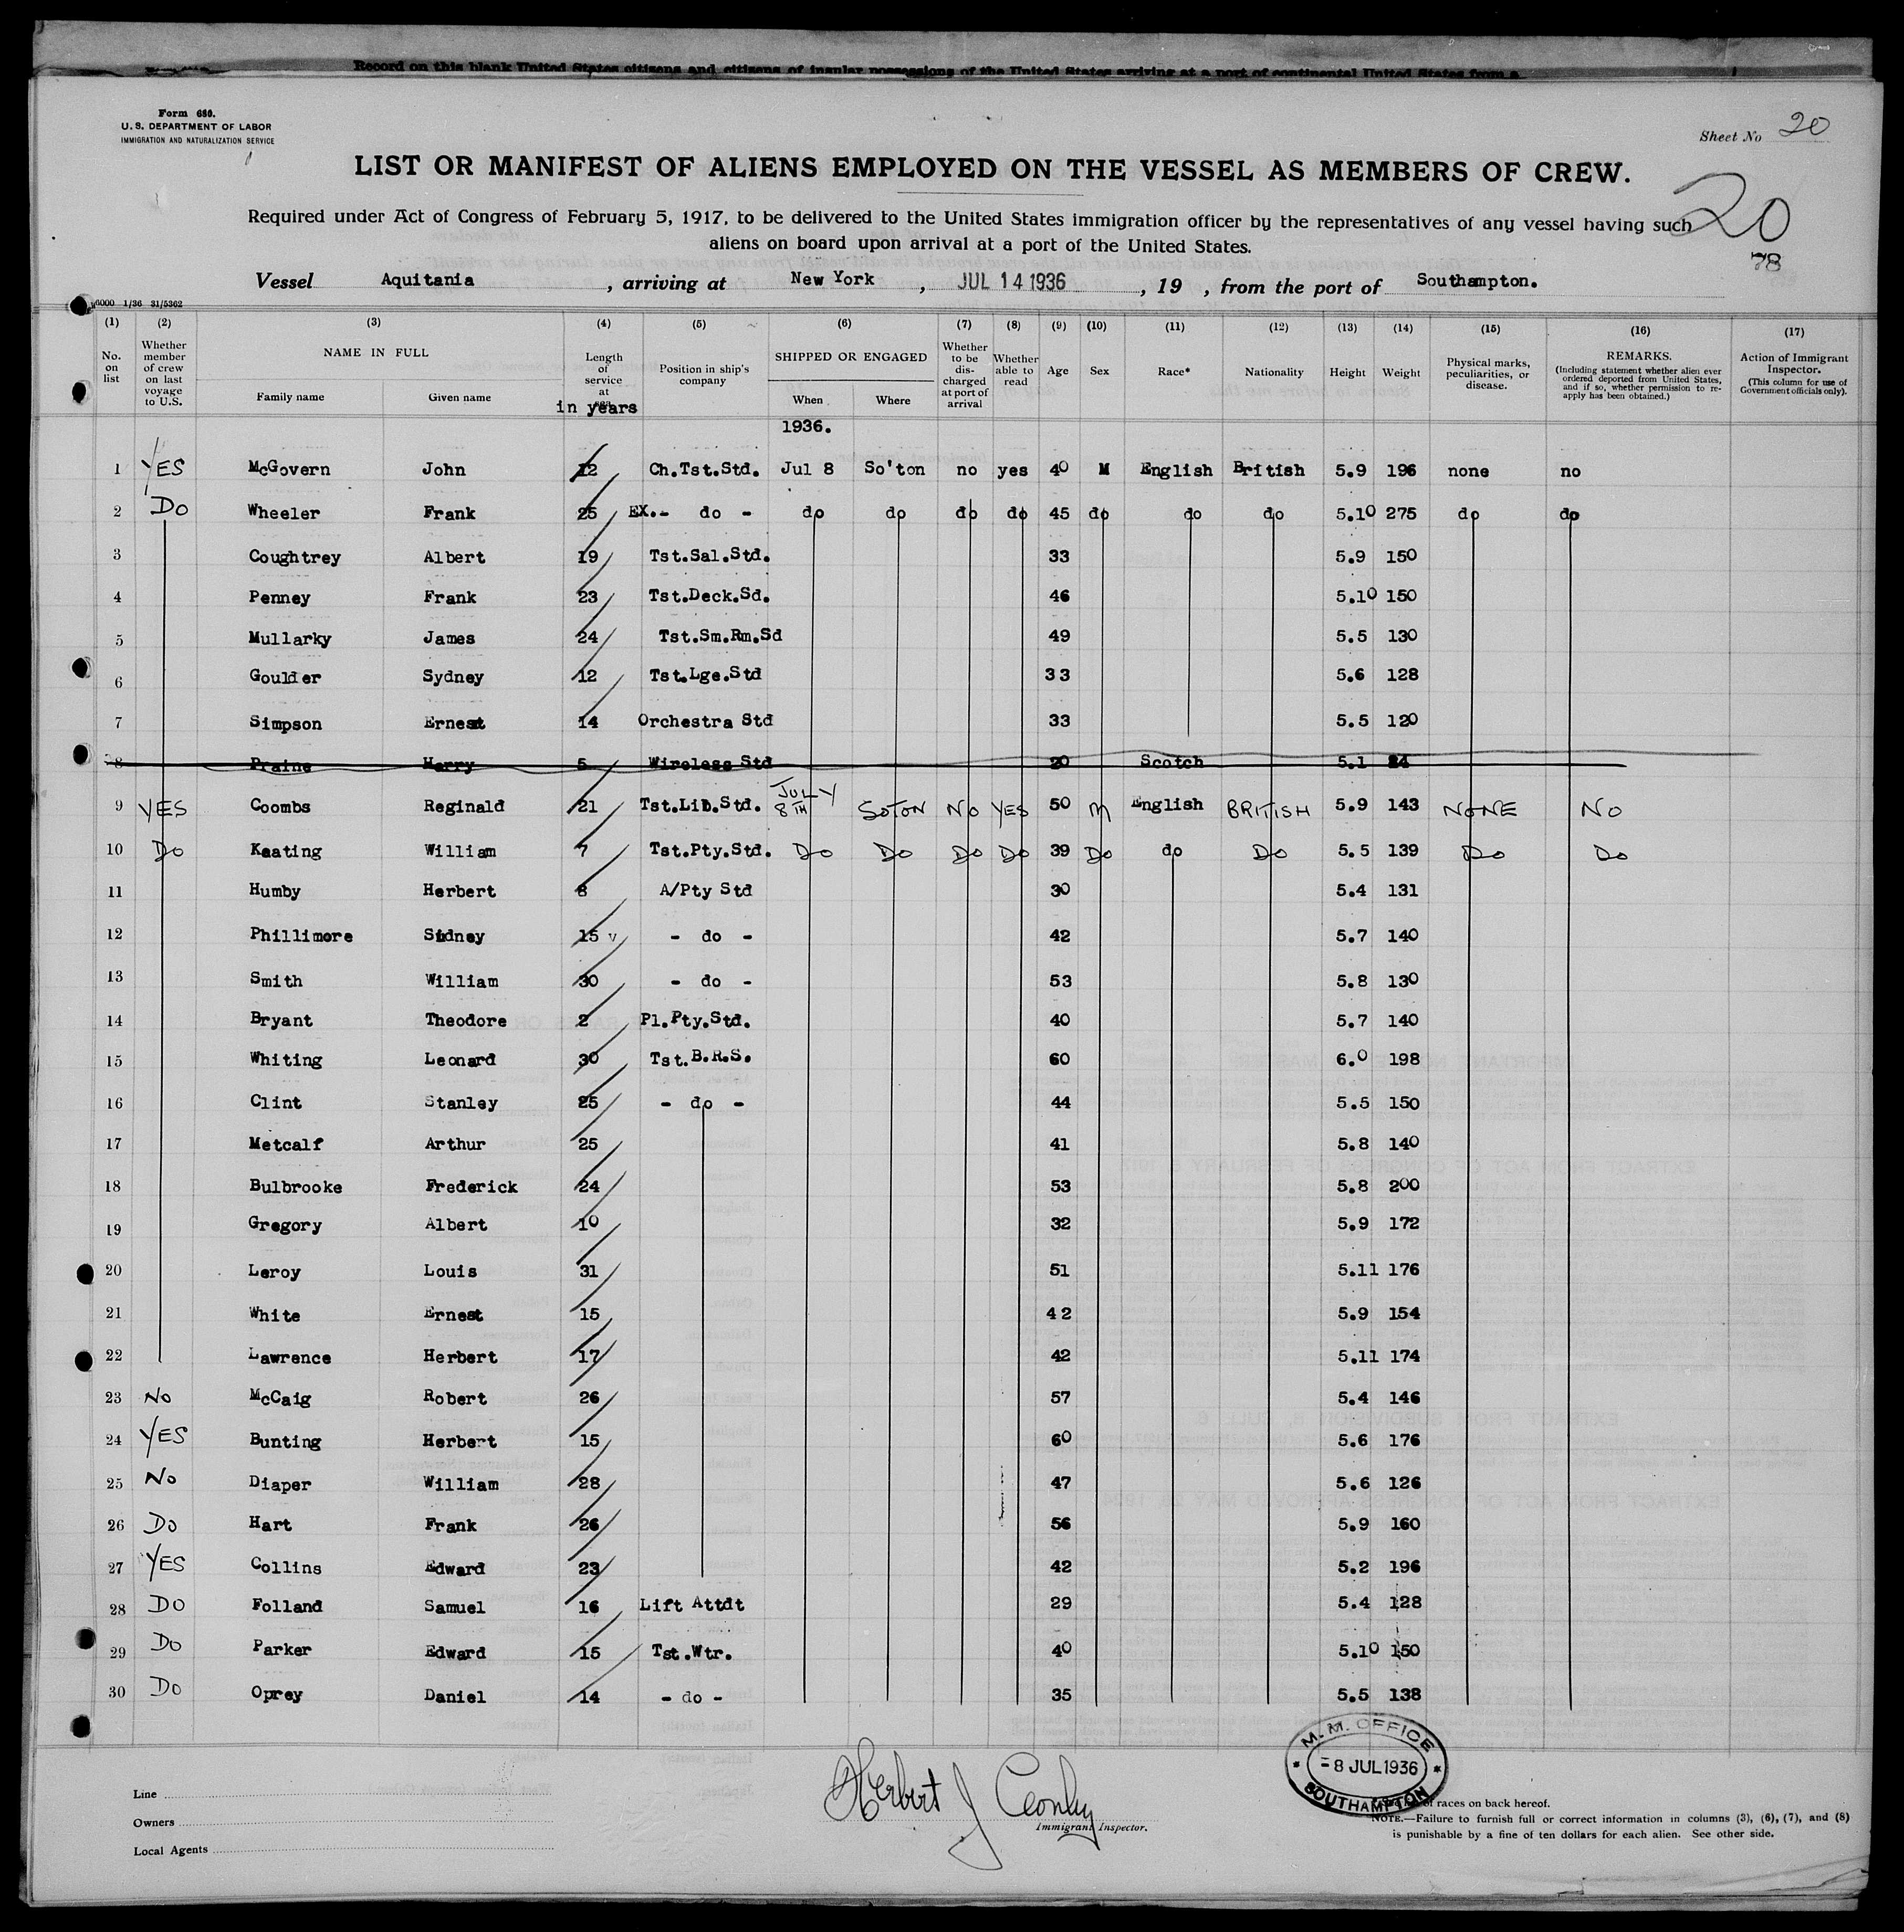 Record on this blank United States citizens and citizens of insular possessions of the United States arriving at a port of continental United States from a
Form 680.
U. S. DEPARTMENT OF LABOR
IMMIGRATION AND NATURALIZATION SERVICE
Sheet No 20
LIST OR MANIFEST OF ALIENS EMPLOYED ON THE VESSEL AS MEMBERS OF CREW.
20
Required under Act of Congress of February 5, 1917, to be delivered to the United States immigration officer by the representatives of any vessel having such
aliens on board upon arrival at a port of the United States.
78
Vessel Aquitania, arriving at New York, JUL 14 1936, 19 , from the port of Southampton.
6000 1/36 31/5362
(1) (2) (3) (4) (5) (6) (7) (8) (9) (10) (11) (12) (13) (14) (15) (16) (17)
No. on list
Whether member of crew on last voyage to U.S.
NAME IN FULL
Family name Given name
Length of service at
in years
Position in ship's company
SHIPPED OR ENGAGED
When Where
Whether to be discharged at port of arrival
Whether able to read
Age
Sex
Race*
Nationality
Height
Weight
Physical marks, peculiarities, or disease.
REMARKS.
(Including statement whether alien ever ordered deported from United States, and if so, whether permission to reapply has been obtained.)
Action of Immigrant Inspector.
(This column for use of Government officials only).
1936.
1 YES McGovern John 12 Ch.Tst.Std. Jul 8 So'ton no yes 40 M English British 5.9 196 none no
2 DO Wheeler Frank 25 EX.- do - do do do do 45 do do do 5.10 275 do do
3 Coughtrey Albert 19 Tst.Sal.Std. 33 5.9 150
4 Penney Frank 23 Tst.Deck.Sd. 46 5.10 150
5 Mullarky James 24 Tst.Sm.Rm.Sd 49 5.5 130
6 Goulder Sydney 12 Tst.Lge.Std 33 5.6 128
7 Simpson Ernest 14 Orchestra Std 33 5.5 120
8 Praine Harry 5 Wireless Std 20 Scotch 5.1 24
9 YES Coombs Reginald 21 Tst.Lib.Std. JULY 8TH SOTON NO YES 50 M English BRITISH 5.9 143 NONE NO
10 DO Keating William 7 Tst.Pty.Std. DO DO DO DO 39 DO do DO 5.5 139 DO DO
11 Humby Herbert 8 A/Pty Std 30 5.4 131
12 Phillimore Sidney 15 - do - 42 5.7 140
13 Smith William 30 - do - 53 5.8 130
14 Bryant Theodore 2 Pl.Pty.Std. 40 5.7 140
15 Whiting Leonard 30 Tst.B.R.S. 60 6.0 198
16 Clint Stanley 25 - do - 44 5.5 150
17 Metcalf Arthur 25 41 5.8 140
18 Bulbrooke Frederick 24 53 5.8 200
19 Gregory Albert 10 32 5.9 172
20 Leroy Louis 31 51 5.11 176
21 White Ernest 15 42 5.9 154
22 Lawrence Herbert 17 42 5.11 174
23 NO McCaig Robert 26 57 5.4 146
24 YES Bunting Herbert 15 60 5.6 176
25 NO Diaper William 28 47 5.6 126
26 DO Hart Frank 26 56 5.9 160
27 YES Collins Edward 23 42 5.2 196
28 DO Folland Samuel 16 Lift Attdt 29 5.4 128
29 DO Parker Edward 15 Tst.Wtr. 40 5.10 150
30 DO Oprey Daniel 14 - do - 35 5.5 138
M. M. OFFICE
-8 JUL 1936
SOUTHAMPTON
Line
Owners
Local Agents
Herbert J
Immigrant Inspector.
of races on back hereof.
NOTE.—Failure to furnish full or correct information in columns (3), (6), (7), and (8)
is punishable by a fine of ten dollars for each alien. See other side.